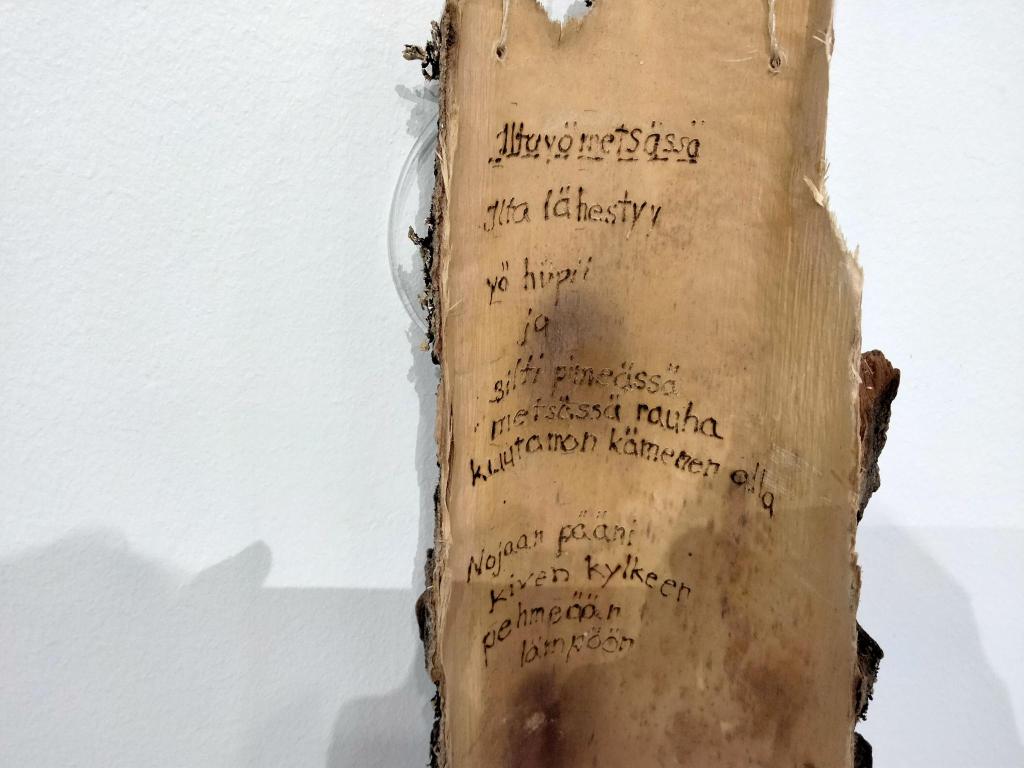 Iltayö metsässä
Ilta lähestyy
yö hiipii
ja
silti pimeässä
metsässä rauha
kuutamon kämenen alla
Nojaan pääni
kiven kylkeen
pehmeään
lämpöön